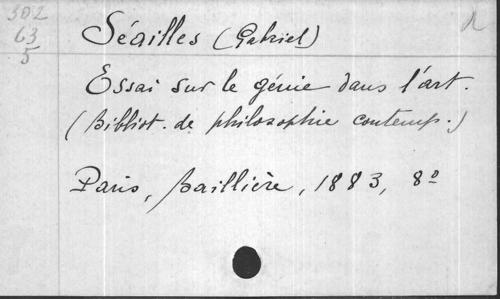 302
63
5
Séailles (Gabriel)
Essai sur le génie dans l'art.
(Bibliot. de philosophie contemp.)
Paris, Baillière, 1883, 8º